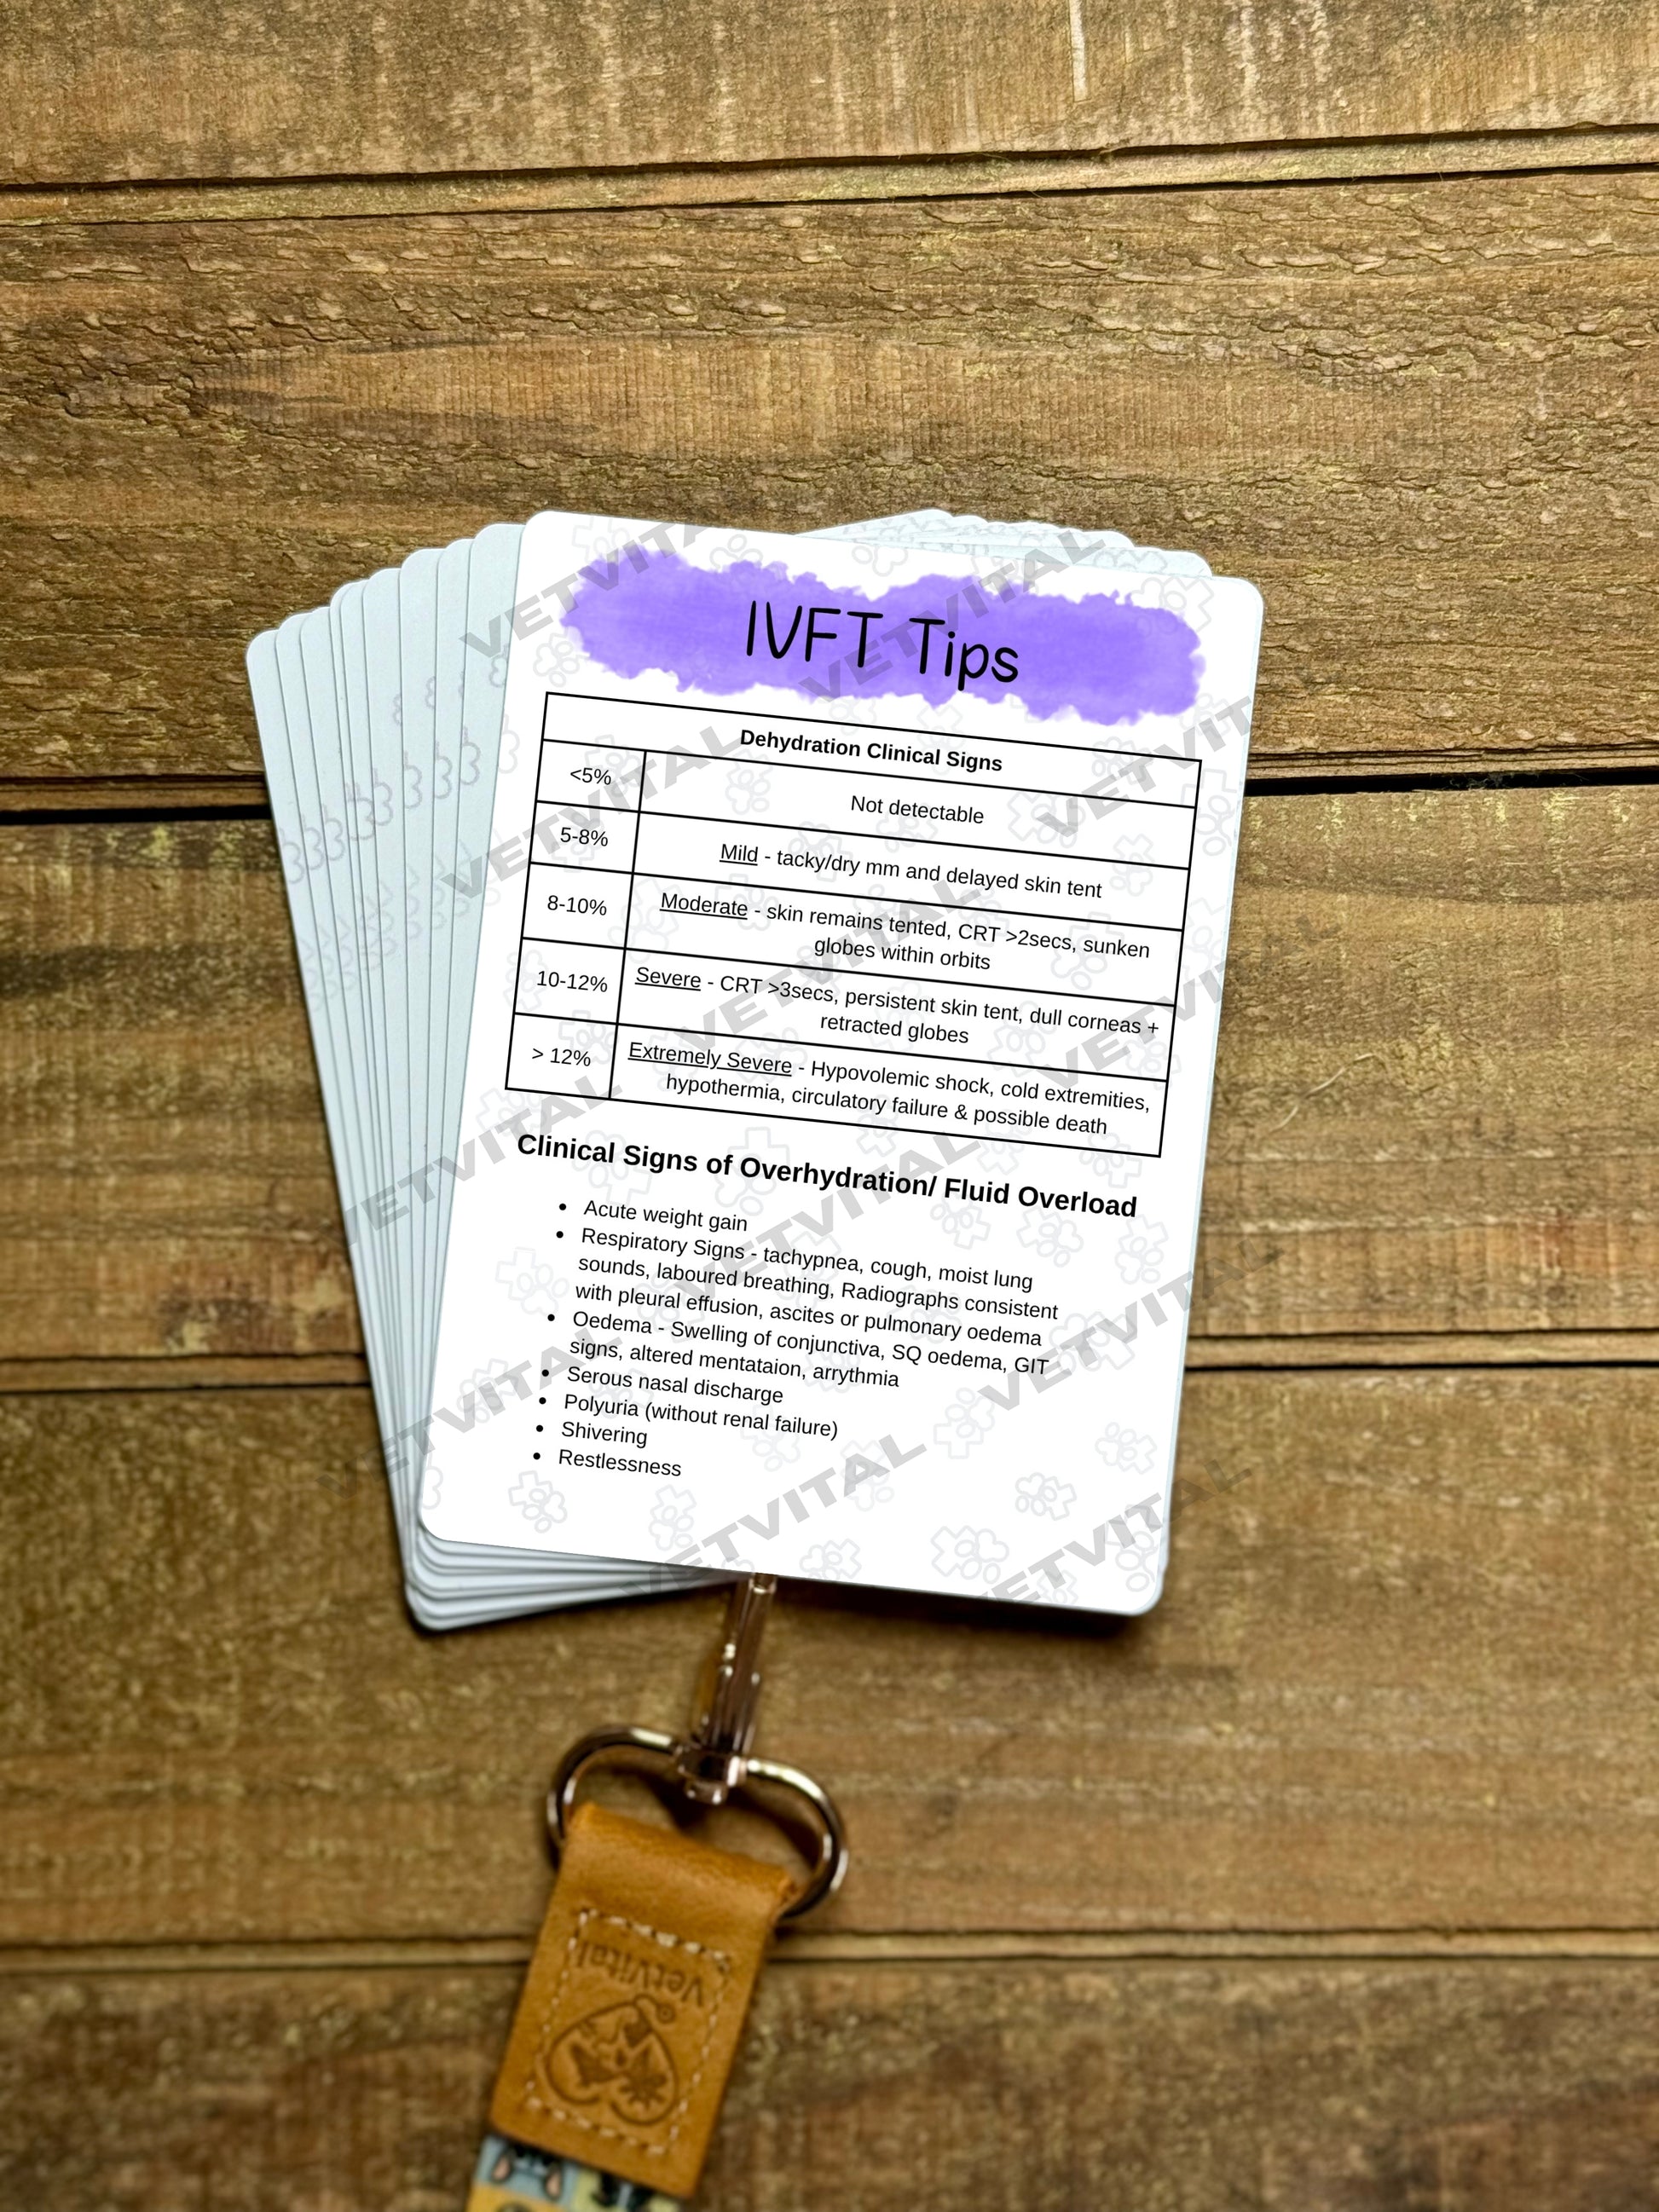 IVFT Tips
Dehydration Clinical Signs
<5%
Not detectable
5-8%
Mild - tacky/dry mm and delayed skin tent
8-10%
Moderate - skin remains tented, CRT >2secs, sunken
globes within orbits
10-12%
Severe - CRT >3secs, persistent skin tent, dull corneas +
retracted globes
> 12%
Extremely Severe - Hypovolemic shock, cold extremities,
hypothermia, circulatory failure & possible death
Clinical Signs of Overhydration/ Fluid Overload
• Acute weight gain
• Respiratory Signs - tachypnea, cough, moist lung
sounds, laboured breathing, Radiographs consistent
with pleural effusion, ascites or pulmonary oedema
• Oedema - Swelling of conjunctiva, SQ oedema, GIT
signs, altered mentataion, arrythmia
• Serous nasal discharge
• Polyuria (without renal failure)
• Shivering
• Restlessness
VETVITAL
VETVITAL
VETVITAL
VETVITAL
VETVITAL
VETVITAL
VETVITAL
VETVITAL
VETVITAL
VETVITAL
VETVITAL
VETVITAL
VETVITAL
VetVital